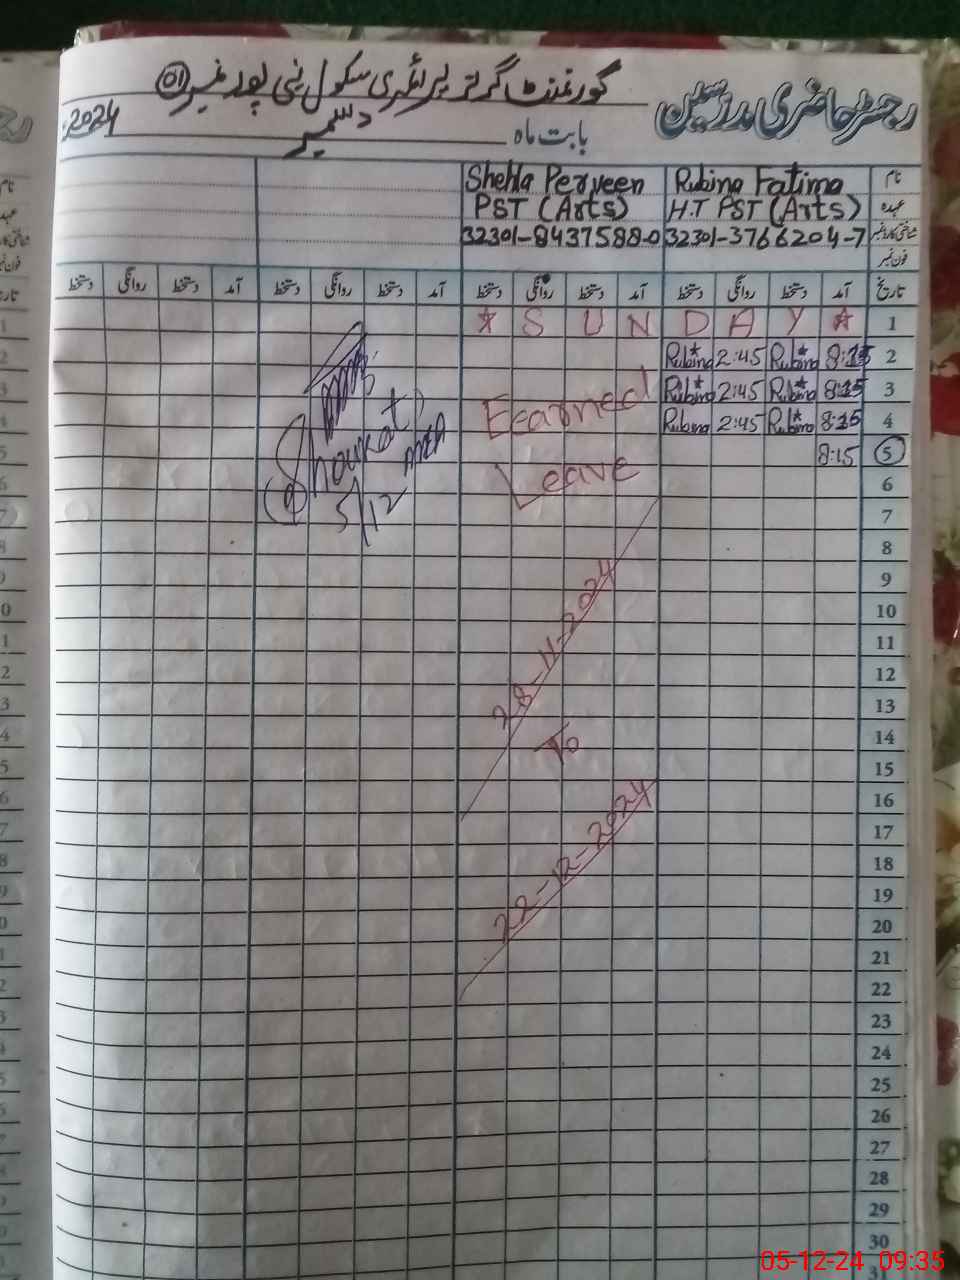 رجسٹر حاضری مدرسین
گورنمنٹ گرلز پرائمری سکول نبی پور نمبر 01
بابت ماہ دسمبر 2024
نام Rubina Fatima Shehla Perveen
عہدہ H.T PST (Arts) PST (Arts)
شناختی کارڈ نمبر 32301-3766204-7 32301-8437588-0
فون نمبر
تاریخ آمد دستخط روانگی دستخط آمد دستخط روانگی دستخط آمد دستخط روانگی دستخط آمد دستخط روانگی دستخط
* S U N D A Y * 1
Rubina 2:45 Rubina 8:15 2
Rubina 2:45 Rubina 8:15 3
Rubina 2:45 Rubina 8:15 4
8:15 5
Earned
Leave
28-11-2024
To
22-12-2024
Shoukat
AEO
5/12
6
7
8
9
10
11
12
13
14
15
16
17
18
19
20
21
22
23
24
25
26
27
28
29
30
31
05-12-24 09:35